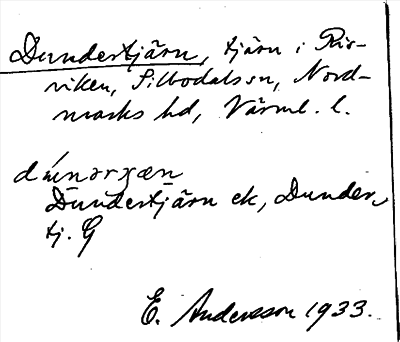 Dundertjärn, tjärn i Ris-
viken, Silbodals sn, Nord-
marks hd, Värml. l.
Dundertjärn ek, Dunder
tj. G
E. Andersson 1933.